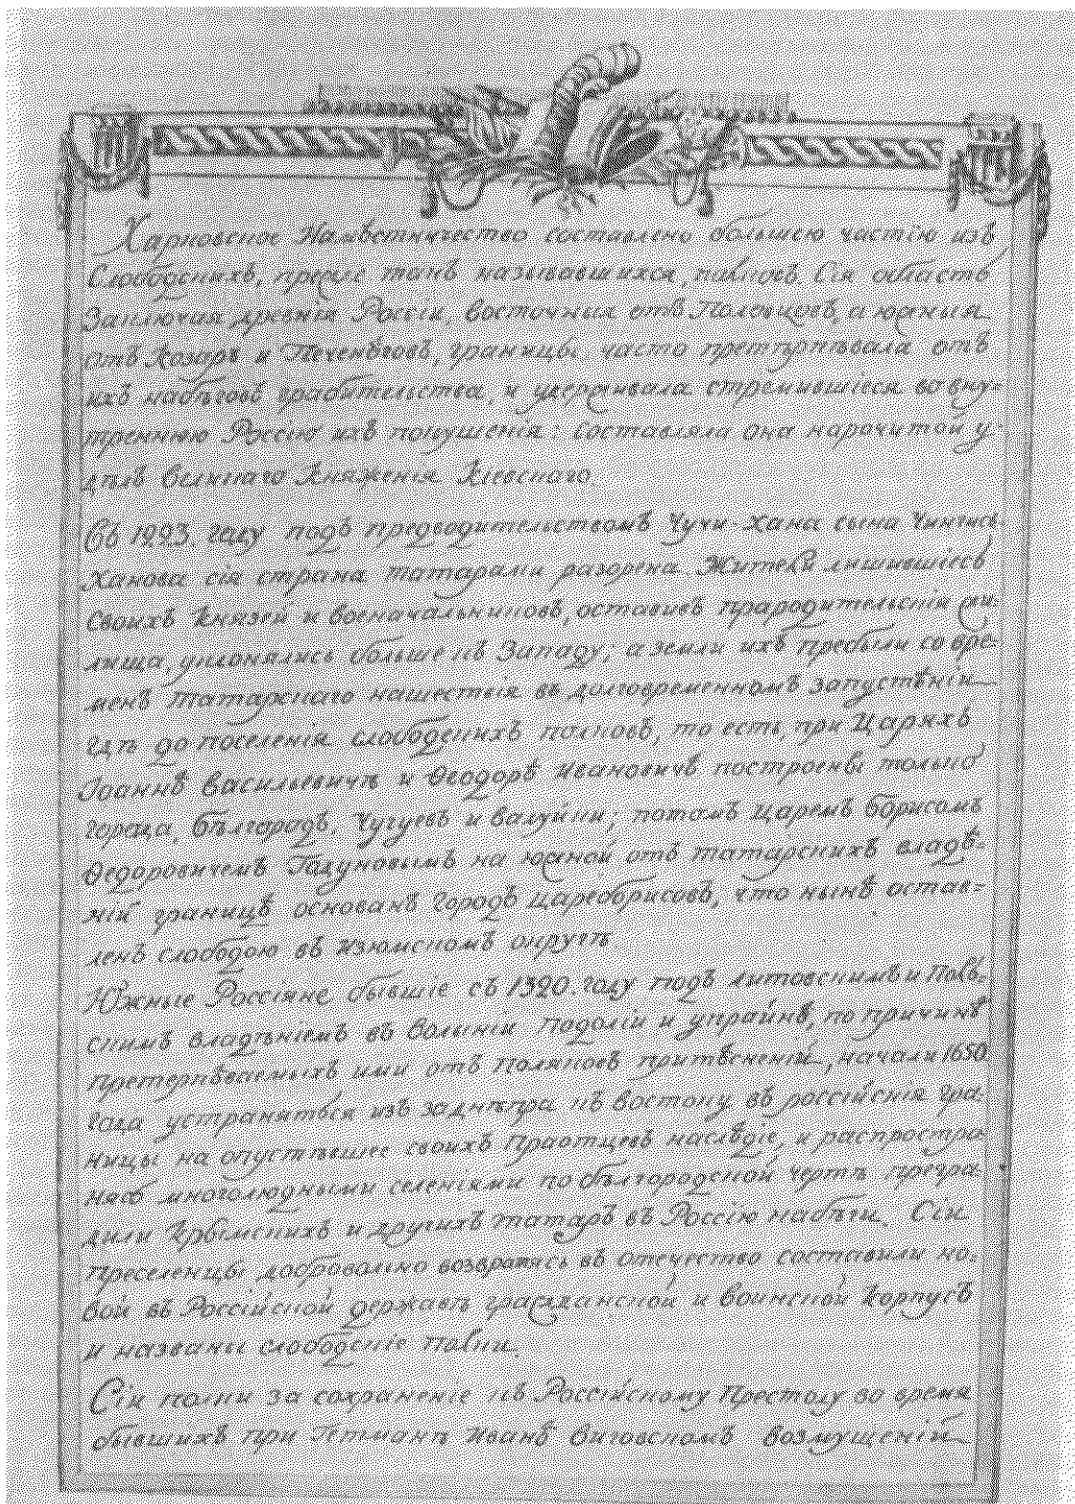 Харковское Намѣстничество составлено большею частію изъ
Слободскихъ, прежде такъ называвшихся, полковъ. Сія область
Заключая древнія Россіи, восточныя отъ Половцовъ, а южныя
отъ Козаръ и Печенѣговъ, границы, часто претѣрпѣвала отъ
ихъ набѣговъ грабительства, и удерживала стремившіеся во вну-
треннюю Россію ихъ покушенія: составляла она нарочитой у-
дѣлъ Великаго Княженія Кіевскаго.
Съ 1223. году подъ предводительствомъ Чучи-Хана сына Чингисъ
Ханова сія страна татарами разорена. Жители лишившіесь
Своихъ Князей и военачальниковъ, оставивъ прародительскія жи-
лища, уклонялись больше къ Западу; а земли ихъ пребыли со вре-
менъ Татарскаго нашествія въ долговременномъ запустѣніи
Гдѣ до поселенія слободскихъ полковъ, то есть, при Царяхъ
Іоаннѣ Васильевичѣ и Ѳеодорѣ Ивановичѣ построены только
города, Бѣлгородъ, Чугуевъ и Валуйки; потомъ Царемъ Борисомъ
Ѳедоровичемъ Годуновымъ на южной отъ татарскихъ владѣ-
ній границѣ основанъ городъ Цареборисовъ, что нынѣ остав-
ленъ слободою въ Изюмскомъ округѣ.
Южные Россіяне бывшіе съ 1320. году подъ литовскимъ и поль-
скимъ владѣніемъ въ Волыніи Подоліи и Украйнѣ, по причинѣ
претерпѣваемыхъ ими отъ поляковъ притѣсненій, начали 1650.
года устраняться изъ заднѣпра къ востоку въ россійскія гра-
ницы на опустѣвшее своихъ праотцевъ наслѣдіе, и распростра-
нясь многолюдными селеніями по бѣлгородской чертѣ прегра-
дили Крымскихъ и другихъ татаръ въ Россію набѣги. Сіи
преселенцы добровольно возвратясь въ отечество составили но-
вой въ Россійской державѣ гражданской и воинской Корпусъ
и названы слободскіе полки.
Сіи полки за сохраненіе къ Россійскому Престолу во время
бывшихъ при Гетманѣ Иванѣ Виговскомъ возмущеній